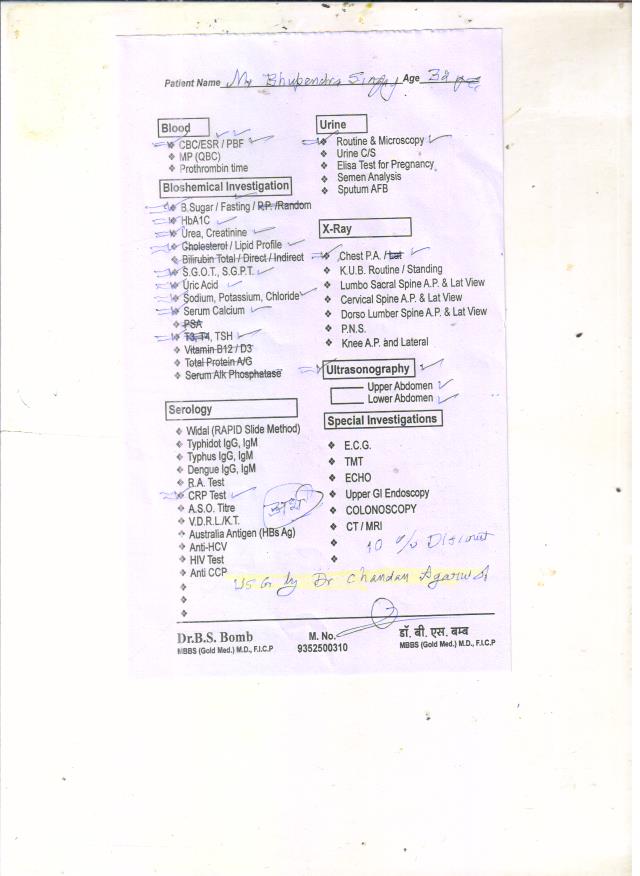 Patient Name Mr Bhupendra Singh Age 38 yrs
Blood
❖ CBC/ESR / PBF
❖ MP (QBC)
❖ Prothrombin time
Bioshemical Investigation
❖ B.Sugar / Fasting / P.P. /Random
❖ HbA1C
❖ Urea, Creatinine
❖ Cholesterol / Lipid Profile
❖ Bilirubin Total / Direct / Indirect
❖ S.G.O.T., S.G.P.T.
❖ Uric Acid
❖ Sodium, Potassium, Chloride
❖ Serum Calcium
❖ PSA
❖ T3, T4, TSH
❖ Vitamin B12 / D3
❖ Total Protein A/G
❖ Serum Alk Phosphatase
Serology
❖ Widal (RAPID Slide Method)
❖ Typhidot IgG, IgM
❖ Typhus IgG, IgM
❖ Dengue IgG, IgM
❖ R.A. Test
❖ CRP Test
❖ A.S.O. Titre
❖ V.D.R.L./K.T.
❖ Australia Antigen (HBs Ag)
❖ Anti-HCV
❖ HIV Test
❖ Anti CCP
Urine
❖ Routine & Microscopy
❖ Urine C/S
❖ Elisa Test for Pregnancy
❖ Semen Analysis
❖ Sputum AFB
X-Ray
❖ Chest P.A. / Lat
❖ K.U.B. Routine / Standing
❖ Lumbo Sacral Spine A.P. & Lat View
❖ Cervical Spine A.P. & Lat View
❖ Dorso Lumber Spine A.P. & Lat View
❖ P.N.S.
❖ Knee A.P. and Lateral
Ultrasonography
Upper Abdomen
Lower Abdomen
Special Investigations
❖ E.C.G.
❖ TMT
❖ ECHO
❖ Upper GI Endoscopy
❖ COLONOSCOPY
❖ CT / MRI
10 % Discount
USG by Dr Chandan Agarwal
Dr.B.S. Bomb
MBBS (Gold Med.) M.D., F.I.C.P
M. No.
9352500310
डॉ. बी. एस. बम्ब
MBBS (Gold Med.) M.D., F.I.C.P